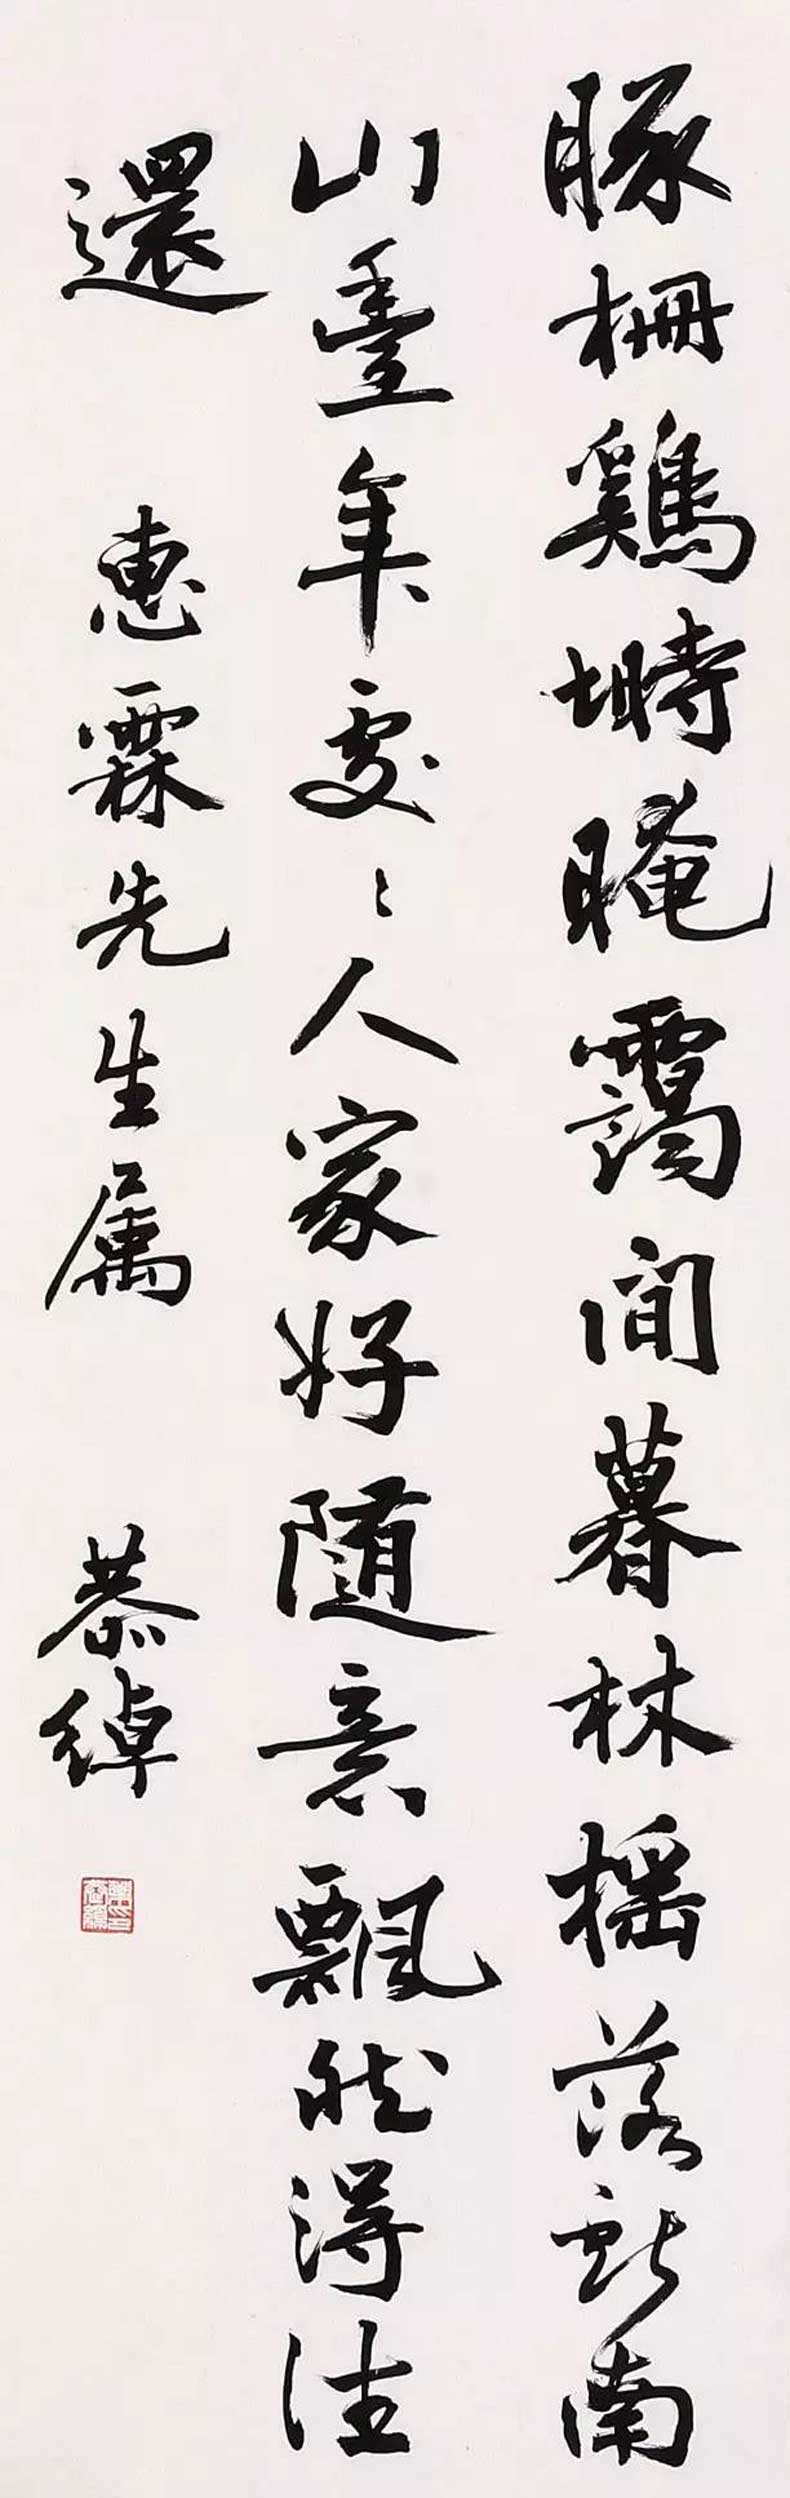 豚柵鷄塒晻靄間暮林摇落獻南
山豊年處〻人家好隨意飄然得往
還
惠霖先生属
恭綽